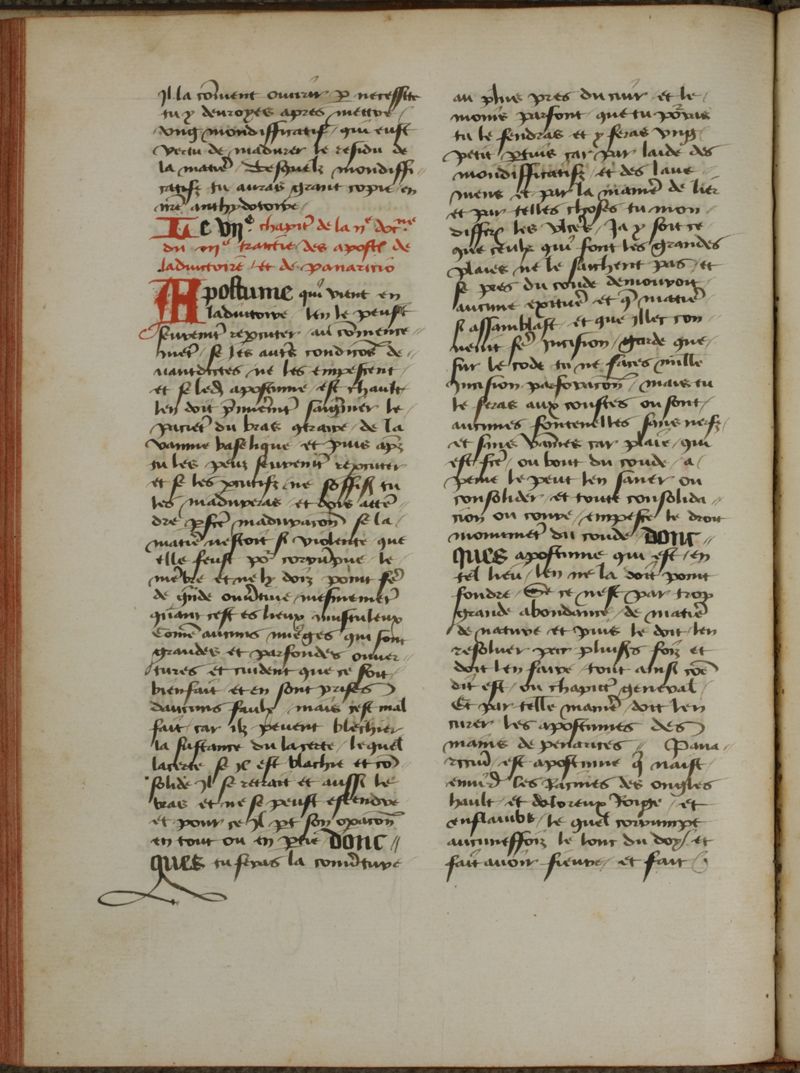 Il la cōvient ouvrir p̲ necessite
tu y devroyes apres mettre
ung mondifficatif / qui eust
vertu de madurer le residu de
la matie᷑ / Desquelz mondiffi
catifz tu auras grant copie en
nr̄e anthydotoire /
Le VIIe chapit᷑ de la IIe doctne
du IIIe traictie des aposte᷑ de
ladiuctoire᷑ / et de panaricio
Apostume qui vient en
ladiuctoire / len le peust
seurement repcuter / au cōmence //
met᷑ / se les autr᷑s condicōs de //
vantdictes ne les empeschent /
et se led apostume / est chault
len doit p̄mieremēt saigner le /
pacient du bras cōtraire / de la
vainne basilique / et puis apz
tu les peuz seurement repcuter
et se les pcutifz ne soffisēt tu
les madureras / et dois atten̄ /
dre p̄fete maduracon̄ / se la /
matie᷑ nestoit si violente que
elle feust po᷑ corrūpre / le
mēbre et ne ly doiz point fe᷑
de gn̄de ouverture / mesmemet᷑
quant cest es lieux musculeux
Come᷑ aucuns mieges qui font
grandes et parfondes ouver //
tures / et cuident que ce soit
bienfait / et en sont prises
daucuns faulx / mais cest mal
fait / car ilz peuent blechier
la sustance du lacerte / lequel
lacerte se il est blachie et cō
solide il se retrait et aussi le
bras / et ne se peust estendre
et pour ce il pt son opacon̄
en tout ou en ptie Donc //
ques tu feras la couverture
au plus pres du cuir et le /
moins parfont / que tu po᷑ras
tu le fendras et y feras ung /
petit ptuis car par laide des
mondifficatifz / et des lave /
mens et par la manie᷑ de lier
et par telles choses tu mon /
differs les ulces᷑ / Ja y soit ce
que ceulx qui font les grandes
plaies ne le saichent pas / et
se pres du coude demouroit /
aucune exiture᷑ et q̄ matie᷑
si assamblast / et que illec con //
venit fe᷑ incision / Garde que /
sur le code tu ne faces nulle
incision parforacon̄ / mais tu
le feras aux coustes ou sont /
aucunes fontenelles sans nerfz /
et sans vaines car plaie / qui
est fte᷑ / ou bout du coude / a /
peine le peut len saner ou
consolider / et toute consolida //
cion ou coupe / empesche le droit
mouvemet᷑ du coude Donc //
ques apostume qui est / en
tel lieu / len ne la doit point
fondre / Se ce nest par trop
grande abondance / de matie᷑
de nature et puis le doit len
resolver par pluisrs foiz et
doit len faire / tout ainsi cōe
dit est / ou chapit᷑ general /
Et par telle manie᷑ doit len
curer les apostumes des
mains de penarices // Pana //
ricium᷑ est apostume q̄ naist /
enuird les Racines des ongles
hault / et doloreux Roige / et
enflambe / le quel corrumpt
aucuneffoiz le bout du doy / et
fait avoir fieure / et fait